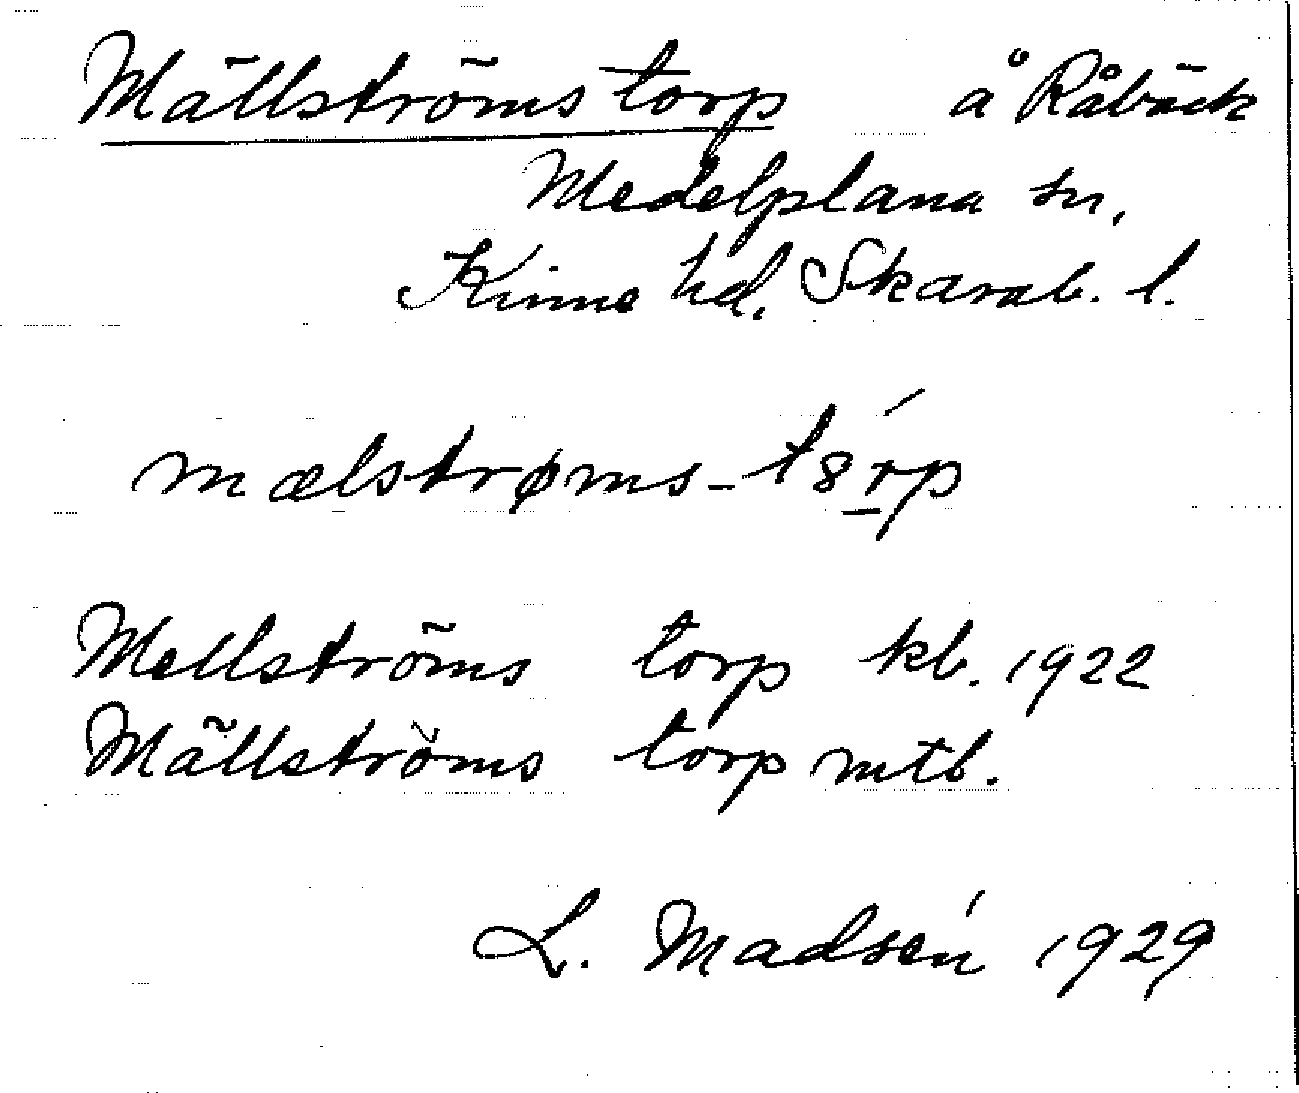 Mällströmstorp å Råbäck
Medelplana sn,
Kinne hd, Skarab. l.
mælstrøms-t8rp
Mellströms torp kb. 1922
Mällströms torp mtb.
L. Madsén 1929